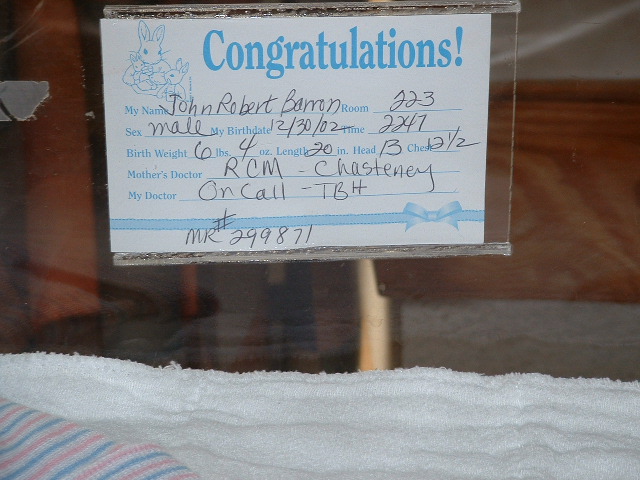 Congratulations!
My Name John Robert Barron Room 223
Sex male My Birthdate 12/30/02 Time 2247
Birth Weight 6 lbs. 4 oz. Length 20 in. Head 13 Chest 12 1/2
Mother's Doctor RCM - Chasteney
My Doctor On Call - TBH
MR# 299871